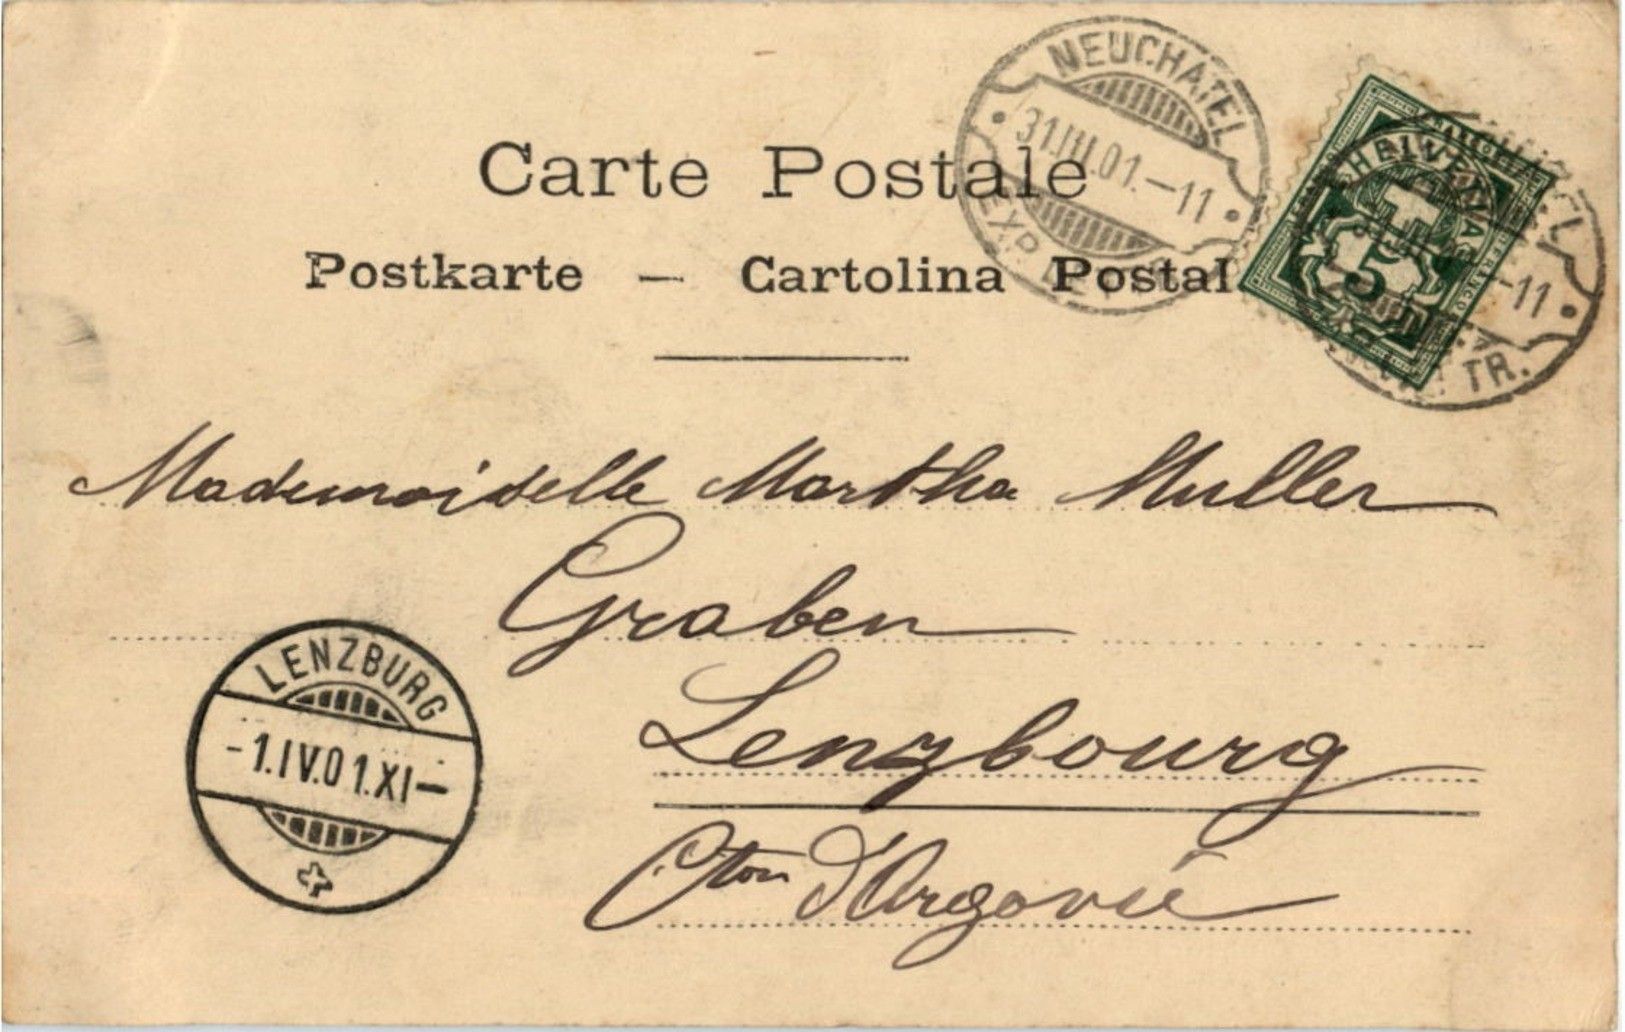 NEUCHATEL
31.III.01.-11
EXP. LETTR.
HELVETIA
FRANCO
5
-11
TR.
Carte Postale
Postkarte — Cartolina Postal
Mademoiselle Martha Muller
Graben
Lenzbourg
Cton d'Argovie
LENZBURG
-1.IV.01.XI-